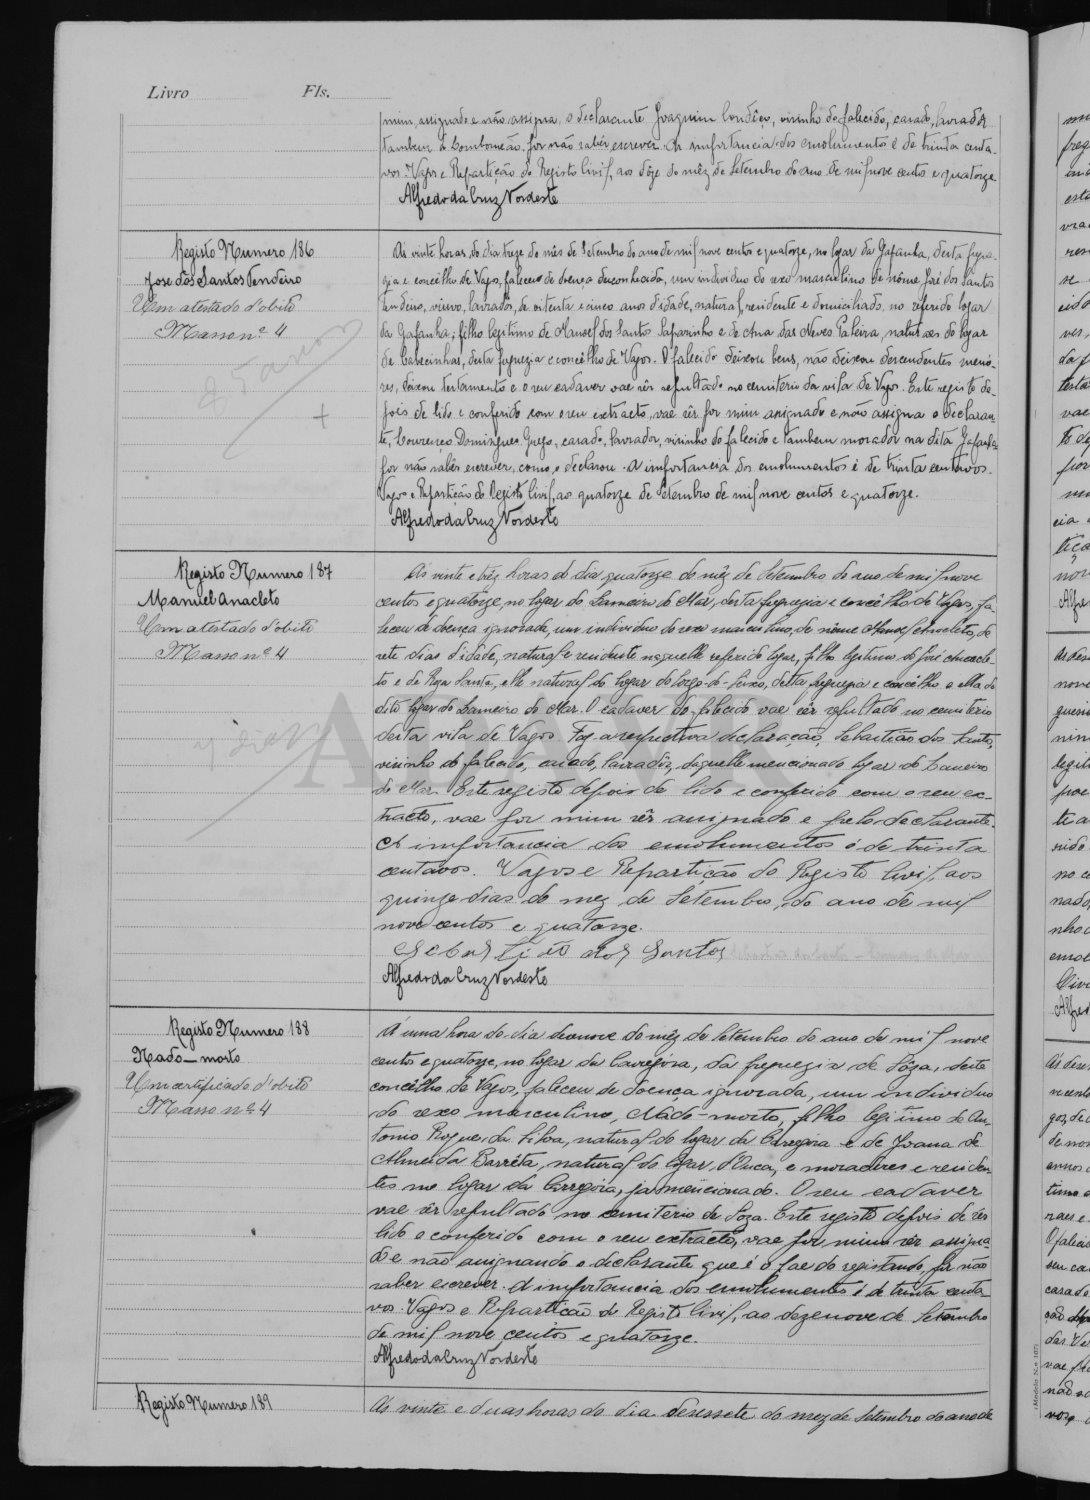 Livro Fls.
mim, assignado e não assigna o declarante Joaquim Condêço, visinho do falecido, casado, lavrador
tambem de Lombomeão, por não saber escrever. A importancia dos emolumentos é de trinta centa-
vos. Vagos e Repartição do Registo Civil, aos dôze do mêz de Setembro do ano de mil nove centos e quatorze
Alfredo da Cruz Nordeste
Registo Numero 186
José dos Santos Tendeiro
Um atestado d'obito
Masso nº 4
85 anos
Ás vinte horas do dia treze do mês de Setembro do ano de mil nove centos e quatorze, no logar da Gafanha, desta fregue-
zia e concêlho de Vagos, faleceu de doença desconhecida, um individuo do sexo masculino de nome José dos Santos
Tendeiro, viuvo, lavrador, de oitenta e cinco anos d'idade, natural, residente e domiciliado, no referido logar
da Gafanha; filho legitimo de Manuel dos Santos e de Ana das Neves, naturaes do logar
de Cabecinhas, desta freguezia e concêlho de Vagos. O falecido deixou bens, não deixou descendentes meno-
res, deixou testamento e o seu cadaver vae sêr sepultado no cemiterio da vila de Vagos. Este registo de-
pois de lido e conferido com o seu extracto, vae sêr por mim assignado e não assigna o declaran-
te, Lourenço Domingues Grego, casado, lavrador, visinho do falecido e tambem morador na dita Gafanha
por não sabêr escrever, como o declarou. A importancia dos emolumentos é de trinta centavos.
Vagos e Repartição do Registo Civil, aos quatorze de Setembro de mil nove centos e quatorze.
Alfredo da Cruz Nordeste
Registo Numero 187
Manuel Anacleto
Um atestado d'obito
Masso nº 4
7 dias
Ás vinte e trêz horas do dia quatorze do mêz de Setembro do ano de mil nove
centos e quatorze, no logar do Lameiro do Mar, desta freguezia e concêlho de Vagos, fa-
leceu de doença ignorada, um individuo do sexo masculino, de nôme Manuel Anacleto, de
sete dias d'idade, natural e residente naquelle referido logar, filho legitimo de José Anacle-
to e de Rosa Santa, elle natural do logar do, desta freguezia e concêlho e ella do
dito logar do Lameiro do Mar. O cadaver do falecido vae sêr sepultado no cemiterio
desta vila de Vagos. Fez a respectiva declaração, Sebastião dos Santos,
visinho do falecido, casado, lavrador, daquelle mencionado logar do Lameiro
do Mar. Este registo depois de lido e conferido com o seu ex-
tracto, vae por mim sêr assignado e pelo declarante.
A importancia dos emolumentos é de trinta
centavos. Vagos e Repartição do Registo Civil, aos
quinze dias do mez de Setembro, do ano de mil
nove centos e quatorze.
Sebastião dos Santos
Alfredo da Cruz Nordeste
Registo Numero 188
Nado-morto
Um certificado d'obito
Masso nº 4
Á uma hora do dia desanove do mêz de Setembro do ano de mil nove
centos e quatorze, no logar da Carregosa, da freguezia de Sôza, deste
concêlho de Vagos, faleceu de doença ignorada, um individuo
do sexo masculino, Nado-morto, filho legitimo de An-
tonio Roque da Silva, natural do logar da Carregosa e de Joana de
Almeida Barrêta, natural do logar d'Ouca, e moradores e residen-
tes no logar da Carregosa, ja mencionado. O seu cadaver
vae sêr sepultado no cemiterio de Soza. Este registo depois de ser
lido e conferido com o seu extracto, vae por mim sêr assigna-
do e não assignando o declarante que é o pae do registando, por não
saber escrever. A importancia dos emolumentos é de trinta centa-
vos. Vagos e Repartição do Registo Civil, ao dezenove de Setembro
de mil nove centos e quatorze.
Alfredo da Cruz Nordeste
Registo Numero 189
Ás vinte e duas horas do dia desessete do mez de Setembro do ano de